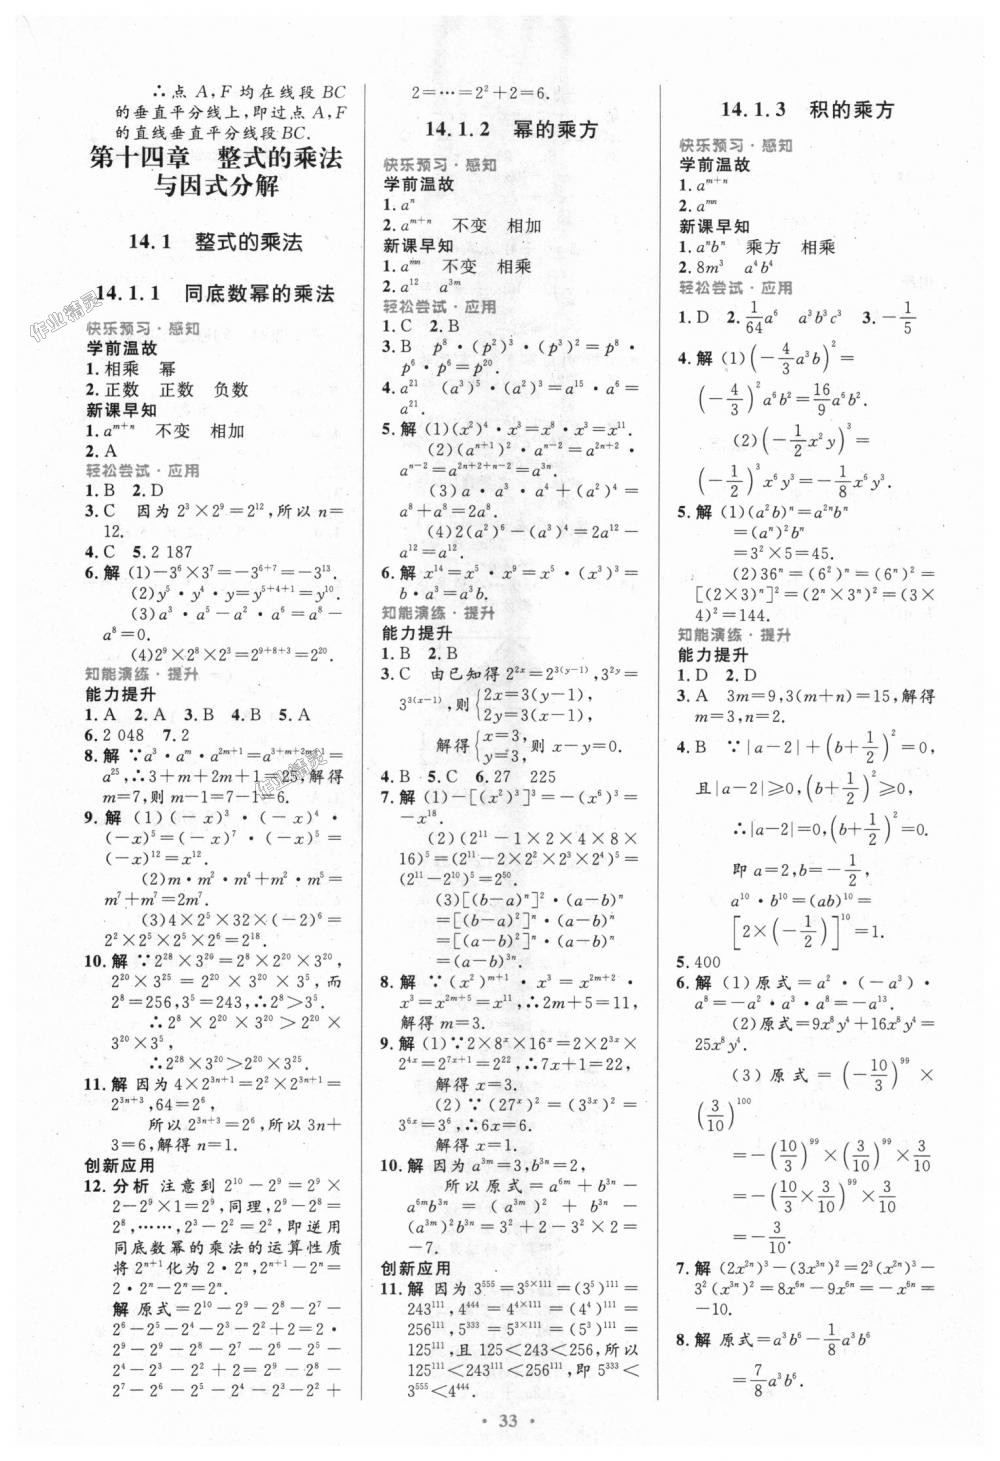 ∴点 A,F 均在线段 BC
的垂直平分线上,即过点 A,F
的直线垂直平分线段BC.
第十四章 整式的乘法
与因式分解
14.1 整式的乘法
14.1.1 同底数幂的乘法
快乐预习·感知
学前温故
1.相乘 幂
2.正数 正数 负数
新课早知
1.a^{m+n} 不变 相加
2.A
轻松尝试·应用
1.B 2.D
3.C 因为 2³×2⁹=2¹²,所以 n=
12.
4.C 5.2 187
6.解 (1)-3⁶×3⁷=-3^{6+7}=-3¹³.
(2)y⁵·y⁴·y=y^{5+4+1}=y¹⁰.
(3)a³·a⁵-a²·a⁶=a⁸-
a⁸=0.
(4)2⁹×2⁸×2³=2^{9+8+3}=2²⁰.
知能演练·提升
能力提升
1.A 2.A 3.B 4.B 5.A
6.2 048 7.2
8.解 ∵a³·a^m·a^{2m+1}=a^{3+m+2m+1}=
a²⁵,∴3+m+2m+1=25,解得
m=7,则 m-1=7-1=6.
9.解 (1)(-x)³·(-x)⁴·
(-x)⁵=(-x)⁷·(-x)⁵=
(-x)¹²=x¹².
(2)m·m²·m⁴+m²·m⁵=
m⁷+m⁷=2m⁷.
(3)4×2⁵×32×(-2)⁶=
2²×2⁵×2⁵×2⁶=2¹⁸.
10.解 ∵2²⁸×3²⁰=2⁸×2²⁰×3²⁰,
2²⁰×3²⁵=2²⁰×3²⁰×3⁵,而
2⁸=256,3⁵=243,∴2⁸>3⁵.
∴2⁸×2²⁰×3²⁰>2²⁰×
3²⁰×3⁵,
∴2²⁸×3²⁰>2²⁰×3²⁵.
11.解 因为 4×2^{3n+1}=2²×2^{3n+1}=
2^{3n+3},64=2⁶,
所以 2^{3n+3}=2⁶,所以 3n+
3=6,解得 n=1.
创新应用
12.分析 注意到 2¹⁰-2⁹=2⁹×
2-2⁹×1=2⁹,同理,2⁹-2⁸=
2⁸,……,2³-2²=2²,即逆用
同底数幂的乘法的运算性质
将 2^{n+1}化为 2·2^n,2^{n+1}-2^n=
2·2^n-2^n=2^n.
解 原式=2¹⁰-2⁹-2⁸-2⁷-
2⁶-2⁵-2⁴-2³-2²+2=2·
2⁹-2⁹-2⁸-2⁷-2⁶-2⁵-
2⁴-2³-2²+2=2⁹-2⁸-
2⁷-2⁶-2⁵-2⁴-2³-2²+
2=…=2²+2=6.
14.1.2 幂的乘方
快乐预习·感知
学前温故
1.a^n
2.a^{m+n} 不变 相加
新课早知
1.a^{mn} 不变 相乘
2.a¹² a^{3m}
轻松尝试·应用
1.C 2.B
3.B p⁸·(p²)³·(p³)²=p⁸·
p⁶·p⁶=p²⁰.
4.a²¹ (a³)⁵·(a²)³=a¹⁵·a⁶=
a²¹.
5.解 (1)(x²)⁴·x³=x⁸·x³=x¹¹.
(2)(a^{n+1})²·a^{n-2}=a^{2n+2}·
a^{n-2}=a^{2n+2+n-2}=a^{3n}.
(3)a·a³·a⁴+(a²)⁴=
a⁸+a⁸=2a⁸.
(4)2(a²)⁶-(a³)⁴=2a¹²-
a¹²=a¹².
6.解 x¹⁴=x⁵·x⁹=x⁵·(x³)³=
b·a³=a³b.
知能演练·提升
能力提升
1.B 2.B
3.C 由已知得 2^{2x}=2^{3(y-1)},3^{2y}=
3^{3(x-1)},则{2x=3(y-1),
2y=3(x-1),
解得{x=3,
y=3, 则 x-y=0.
4.B 5.C 6.27 225
7.解 (1)-[(x²)³]³=-(x⁶)³=
-x¹⁸.
(2)(2¹¹-1×2×4×8×
16)⁵=(2¹¹-2×2²×2³×2⁴)⁵=
(2¹¹-2¹⁰)⁵=2⁵⁰.
(3)[(b-a)^n]²·(a-b)^n
=[(b-a)²]^n·(a-b)^n
=[(a-b)²]^n·(a-b)^n
=(a-b)^{3n}.
8.解 ∵(x²)^{m+1}·x³=x^{2m+2}·
x³=x^{2m+5}=x¹¹,∴2m+5=11,
解得 m=3.
9.解 (1)∵2×8^x×16^x=2×2^{3x}×
2^{4x}=2^{7x+1}=2²²,∴7x+1=22,
解得 x=3.
(2)∵(27^x)²=(3^{3x})²=
3^{6x}=3⁶,∴6x=6.
解得 x=1.
10.解 因为 a^{3m}=3,b^{3n}=2,
所以原式=a^{6m}+b^{3n}-
a^{6m}b^{3n}=(a^{3m})²+b^{3n}-
(a^{3m})²b^{3n}=3²+2-3²×2=
-7.
创新应用
11.解 因为 3⁵⁵⁵=3^{5×111}=(3⁵)¹¹¹=
243¹¹¹,4⁴⁴⁴=4^{4×111}=(4⁴)¹¹¹=
256¹¹¹,5³³³=5^{3×111}=(5³)¹¹¹=
125¹¹¹,且 125<243<256,所以
125¹¹¹<243¹¹¹<256¹¹¹,即 5³³³<
3⁵⁵⁵<4⁴⁴⁴.
14.1.3 积的乘方
快乐预习·感知
学前温故
1.a^{m+n}
2.a^{mn}
新课早知
1.a^n b^n 乘方 相乘
2.8m³ a⁴b⁴
轻松尝试·应用
1.D 2.1/64 a⁶ a³b³c³ 3.-1/5
4.解 (1)(-4/3 a³b)²=
(-4/3)²a⁶b²=16/9 a⁶b².
(2)(-1/2 x²y)³=
(-1/2)³x⁶y³=-1/8 x⁶y³.
5.解 (1)(a²b)^n=a^{2n}b^n
=(a^n)²b^n
=3²×5=45.
(2)36^n=(6²)^n=(6^n)²=
[(2×3)^n]²=(2^n×3^n)²=(3×
4)²=144.
知能演练·提升
能力提升
1.D 2.D
3.A 3m=9,3(m+n)=15,解得
m=3,n=2.
4.B ∵|a-2|+(b+1/2)²=0,
且|a-2|≥0,(b+1/2)²≥0,
∴|a-2|=0,(b+1/2)²=0.
即 a=2,b=-1/2,
a¹⁰·b¹⁰=(ab)¹⁰=
[2×(-1/2)]¹⁰=1.
5.400
6.解 (1)原式=a²·(-a³)·
a⁸=-a²·a³·a⁸=-a¹³.
(2)原式=9x⁸y⁴+16x⁸y⁴=
25x⁸y⁴.
(3)原式=(-10/3)⁹⁹×
(3/10)¹⁰⁰
=-(10/3)⁹⁹×(3/10)⁹⁹×3/10
=-(10/3×3/10)⁹⁹×3/10
=-3/10.
7.解 (2x^{2n})³-(3x^{3n})²=2³(x^{2n})³-
3²(x^{3n})²=8x^{6n}-9x^{6n}=-x^{6n}=
-10.
8.解 原式=a³b⁶-1/8 a³b⁶
=7/8 a³b⁶.
·33·
作业精灵
作业精灵